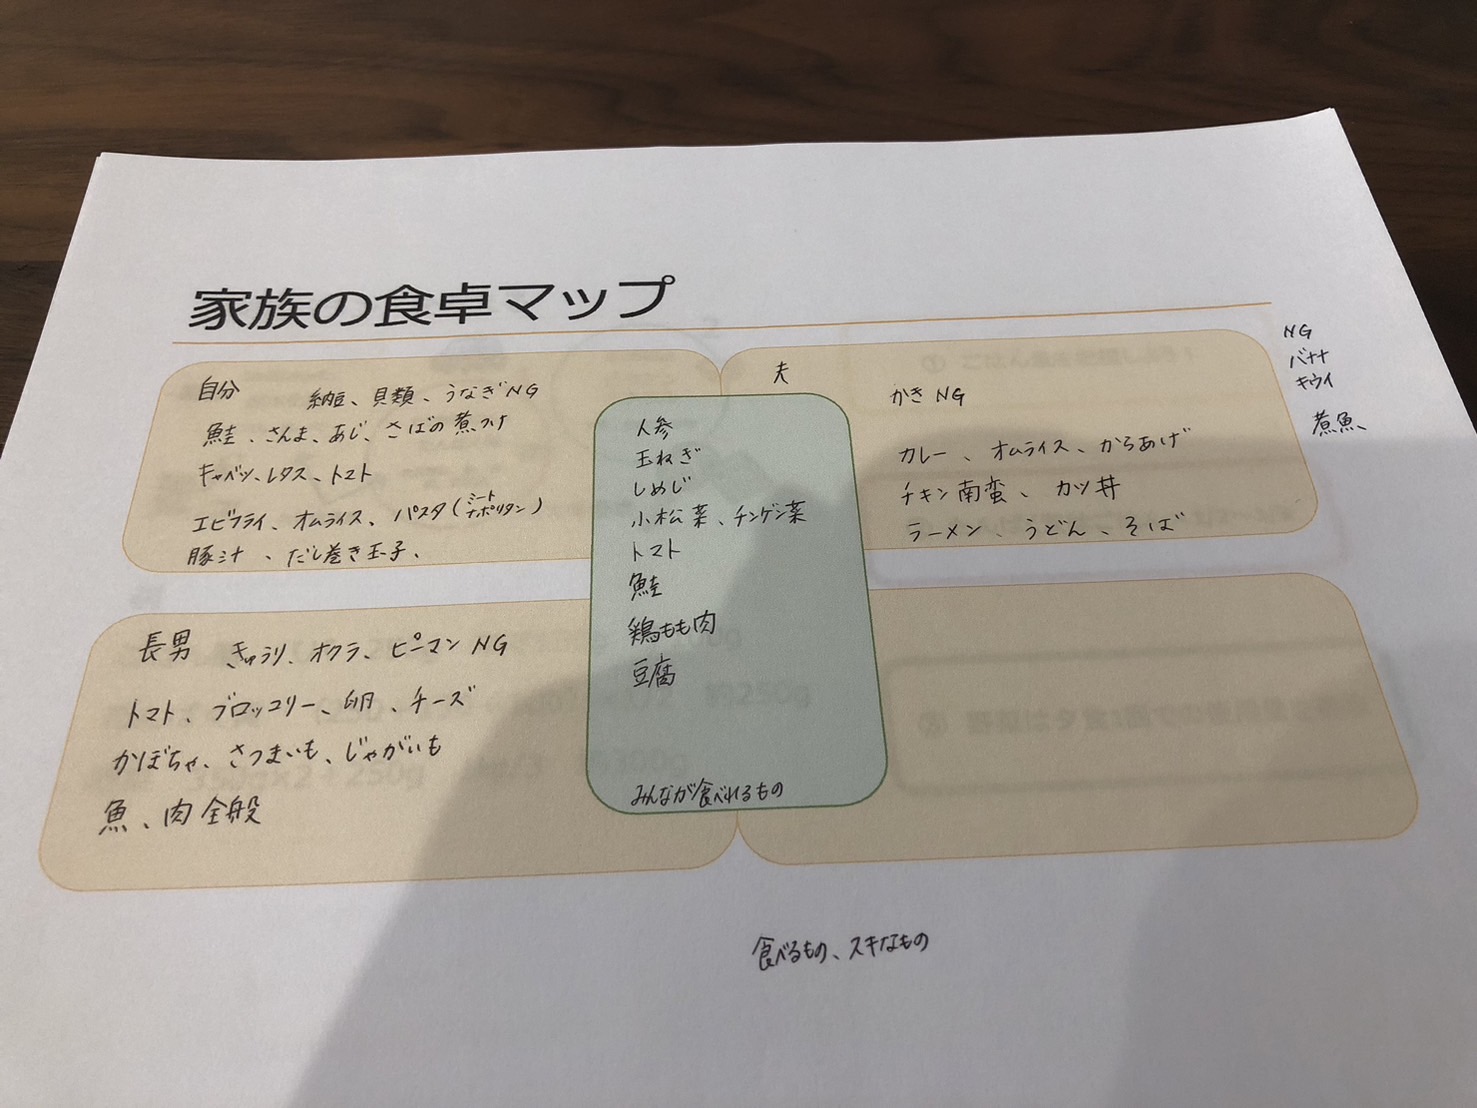 家族の食卓マップ
自分 納豆、貝類、うなぎNG
鮭、さんま、あじ、さばの煮つけ
キャベツ、レタス、トマト
エビフライ、オムライス、パスタ(ミート ナポリタン)
豚汁、だし巻き玉子、
夫
かきNG
カレー、オムライス、からあげ
チキン南蛮、カツ丼
ラーメン、うどん、そば
NG
バナナ
キウイ
煮魚、
人参
玉ねぎ
しめじ
小松菜、チンゲン菜
トマト
鮭
鶏もも肉
豆腐
みんなが食べれるもの
長男 きゅうり、オクラ、ピーマンNG
トマト、ブロッコリー、卵、チーズ
かぼちゃ、さつまいも、じゃがいも
魚、肉全般
食べるもの、スキなもの